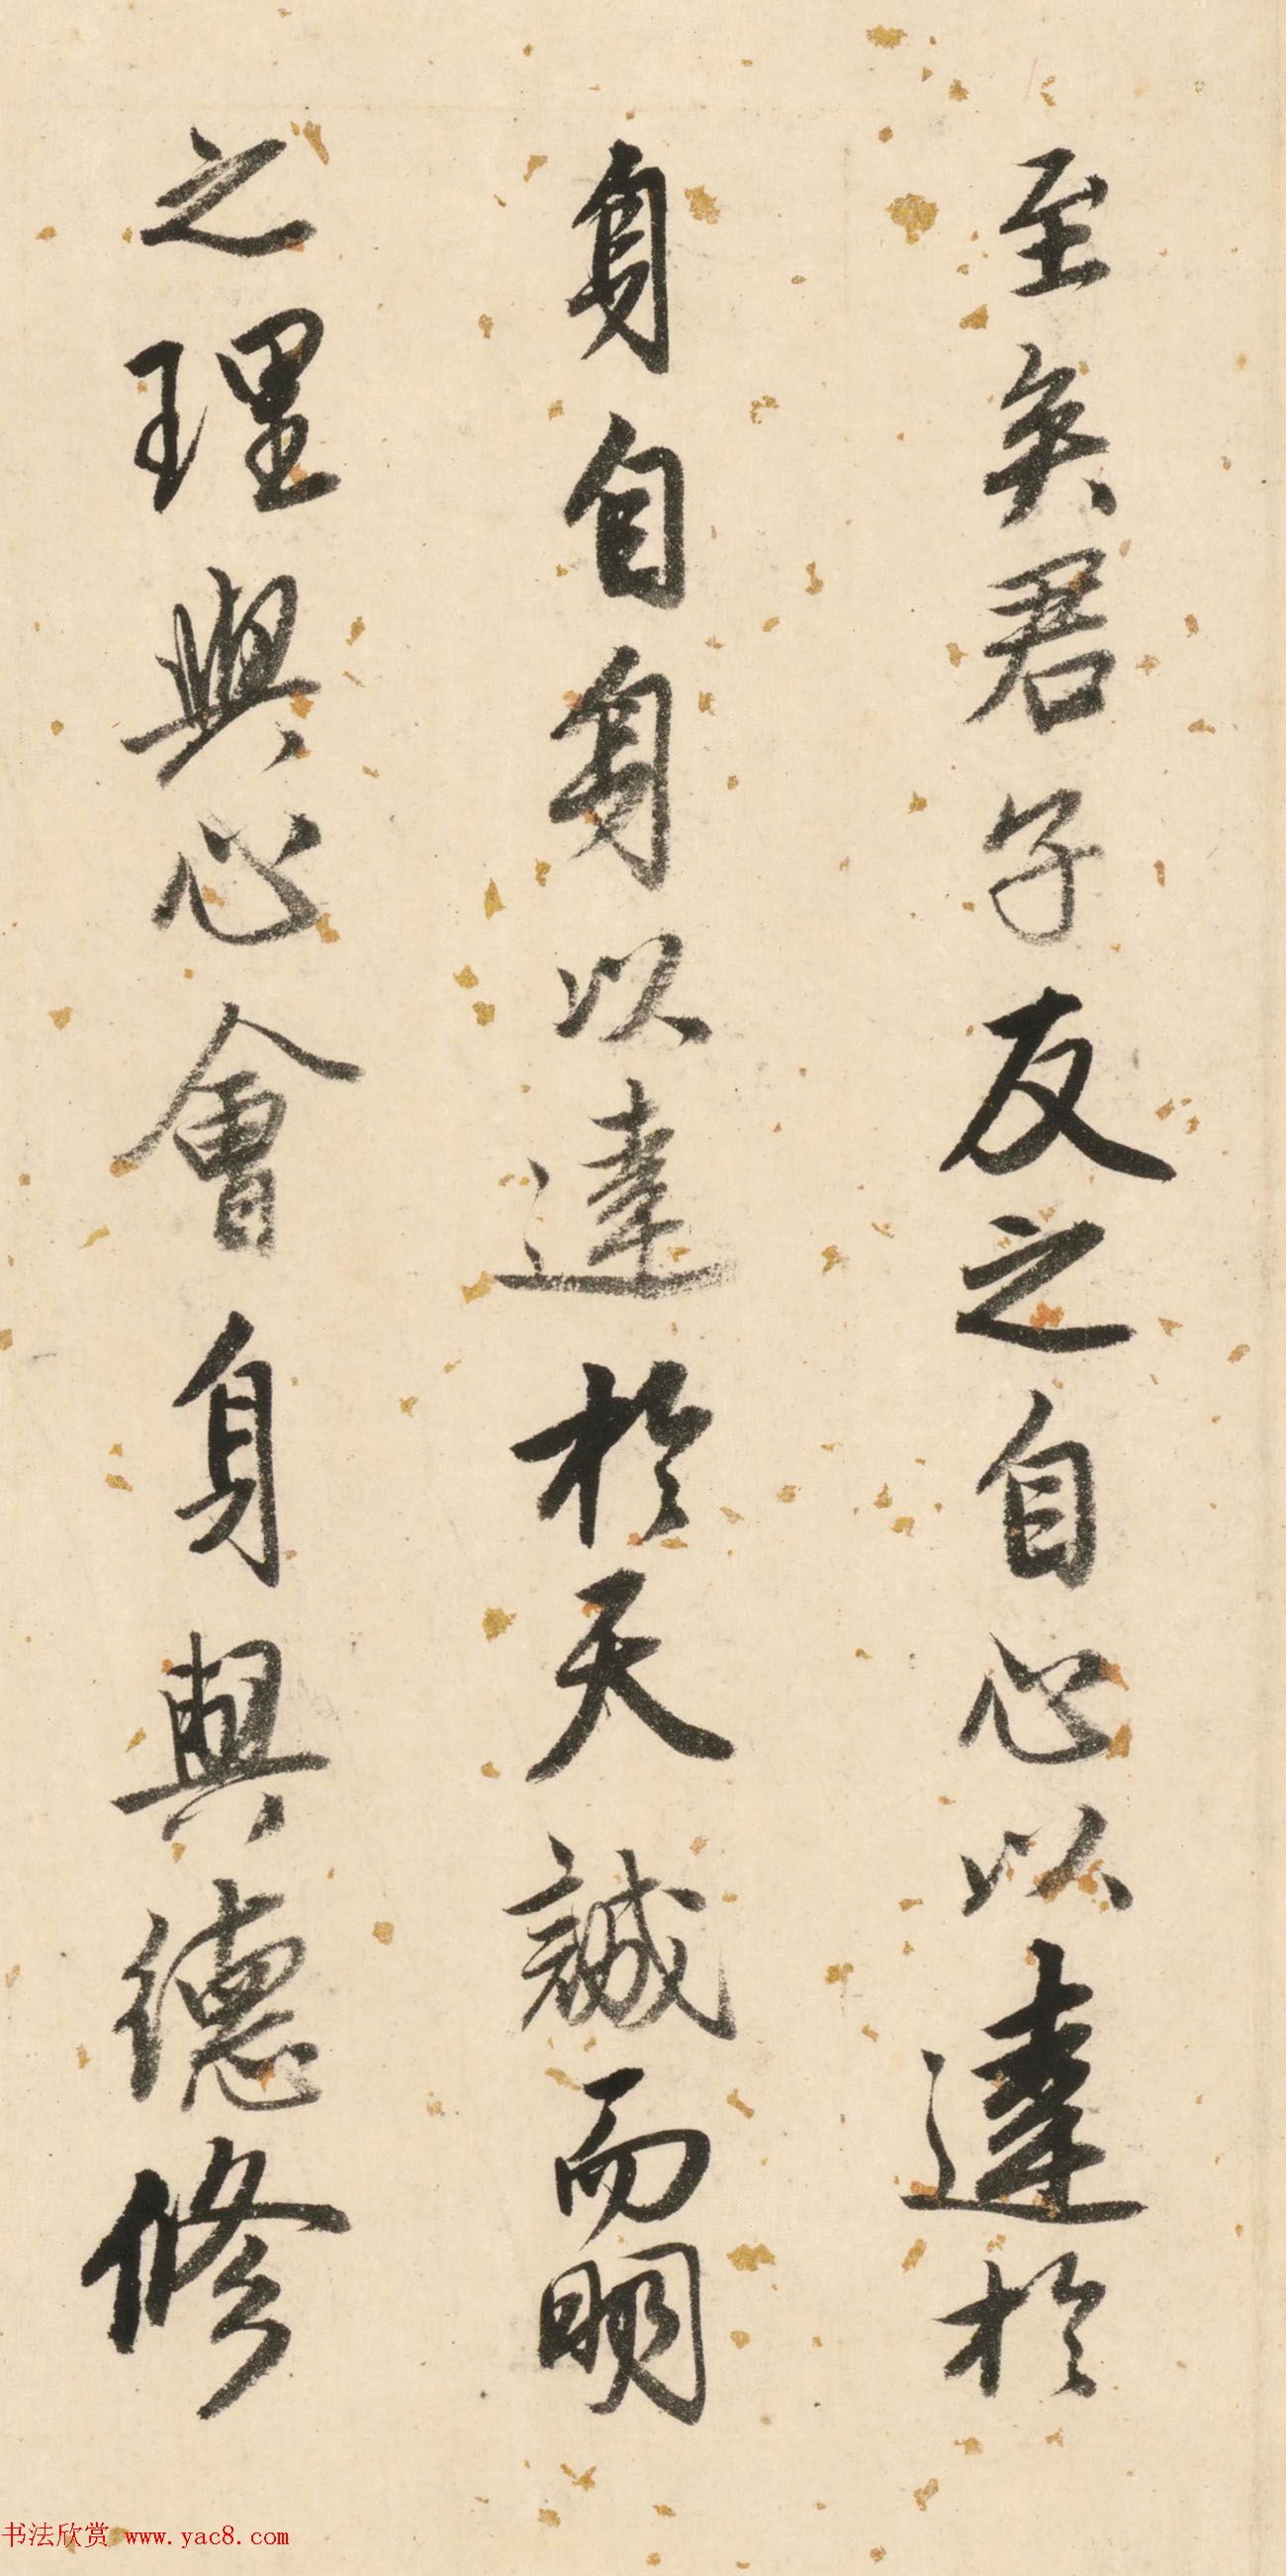 至矣君子友之自心以達於
身自身以達於天誠而明
之理與心會身與德修
书法欣赏 www.yac8.com